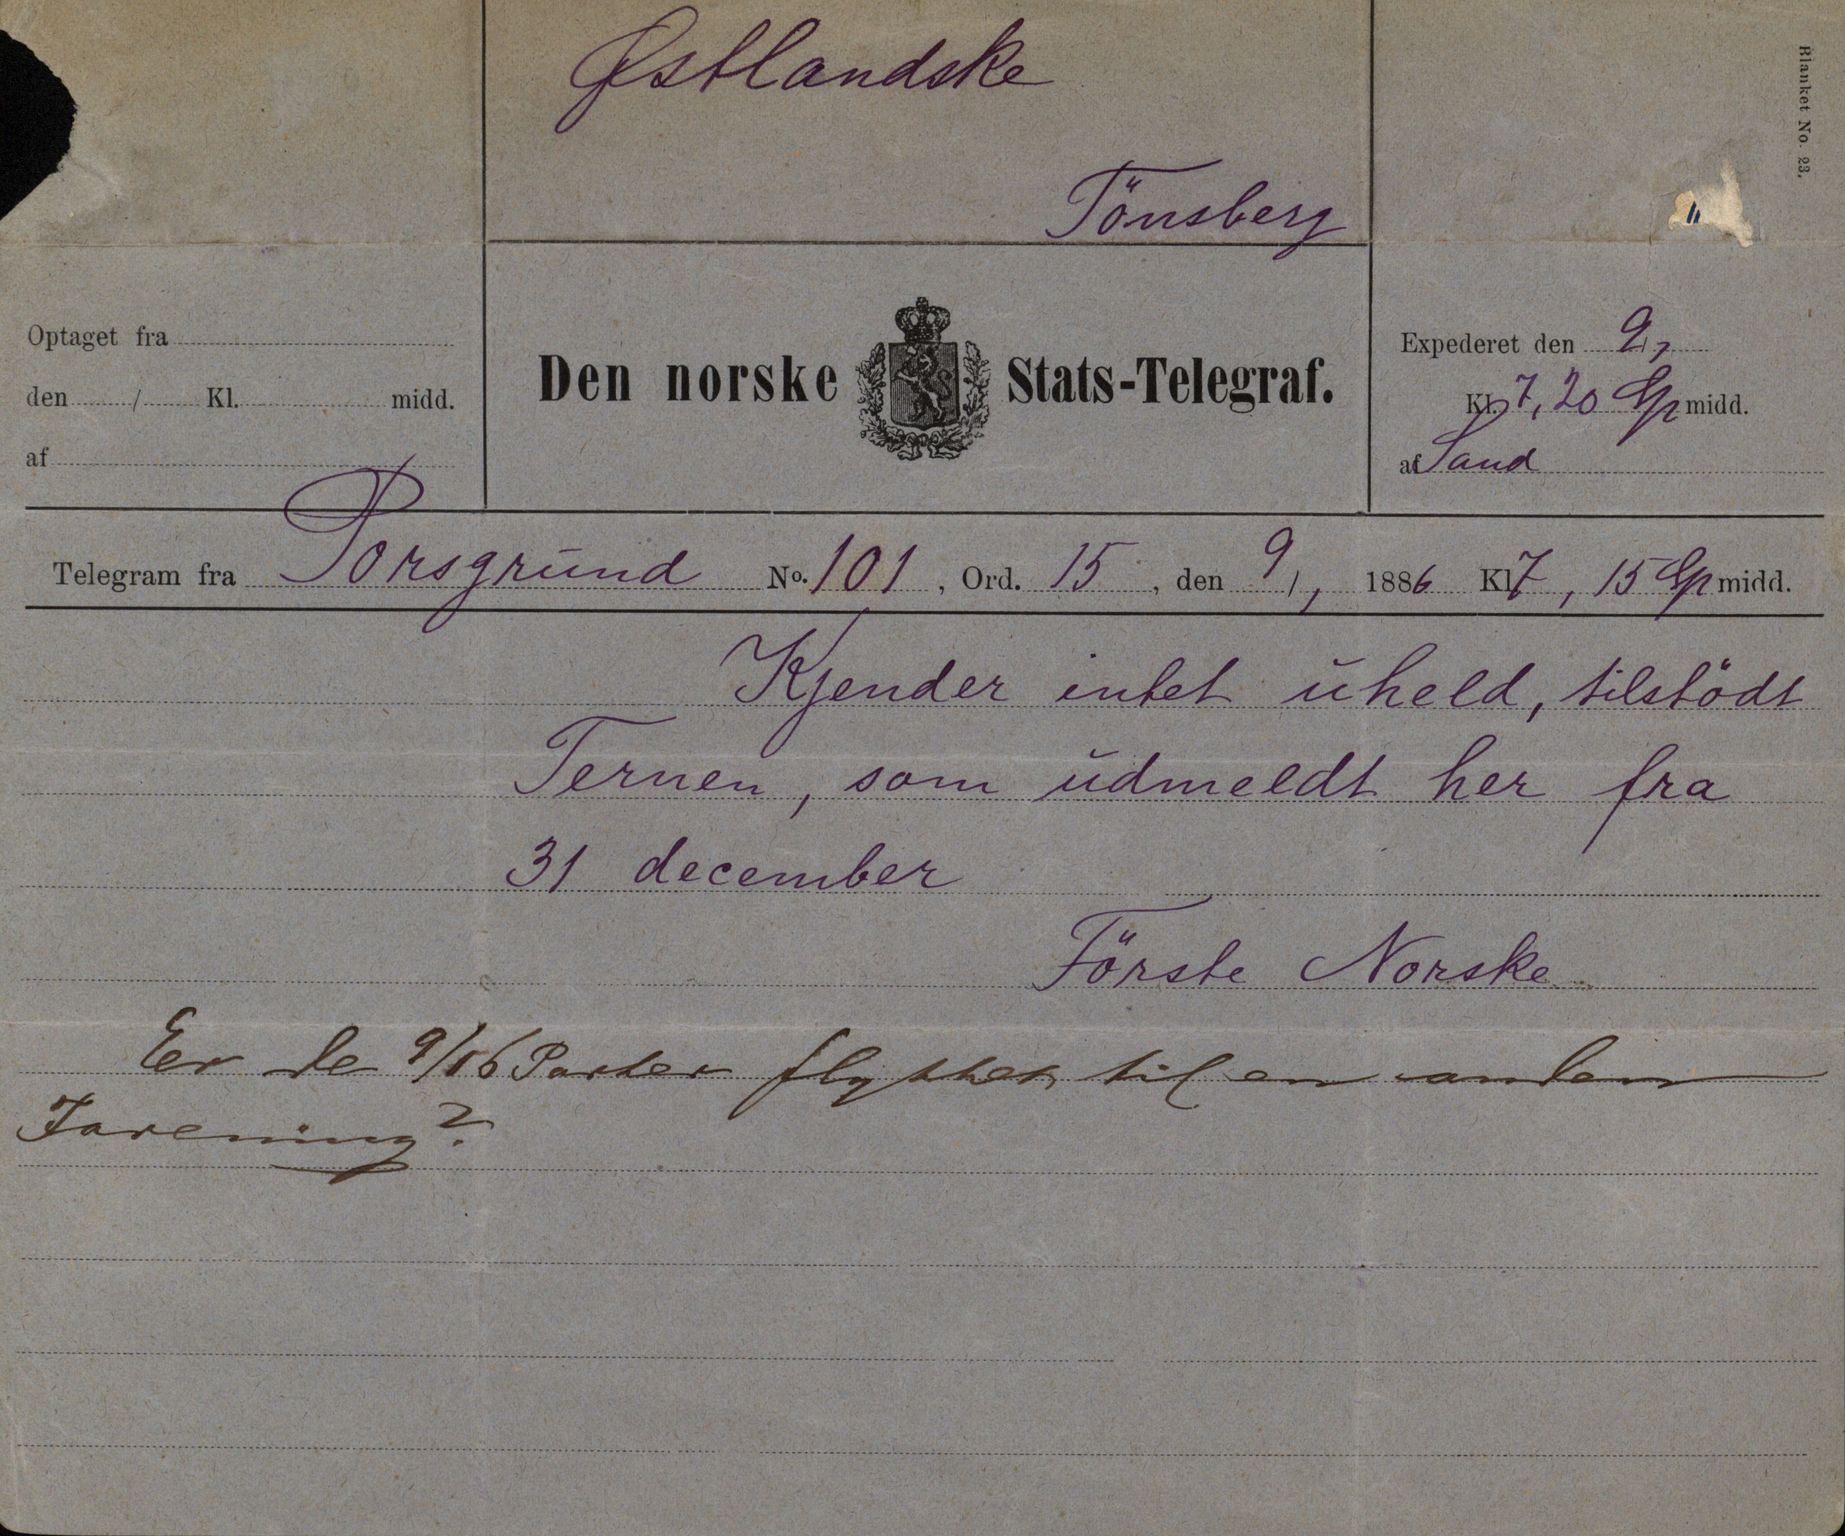 Østlandske
Tönsberg
Blanket No. 23.
Optaget fra
den / Kl. midd.
af
Den norske Stats-Telegraf.
Expederet den 9/1
Kl. 7,20 Ep midd.
af Sand
Telegram fra Porsgrund No. 101, Ord. 15, den 9/1 1886 Kl 7,15 Ep midd.
Kjender intet uheld, tilstödt
Ternen, som udmeldt her fra
31 december
Förste Norske
Er de 9/16 Parter flyttet til en anden
Forening?